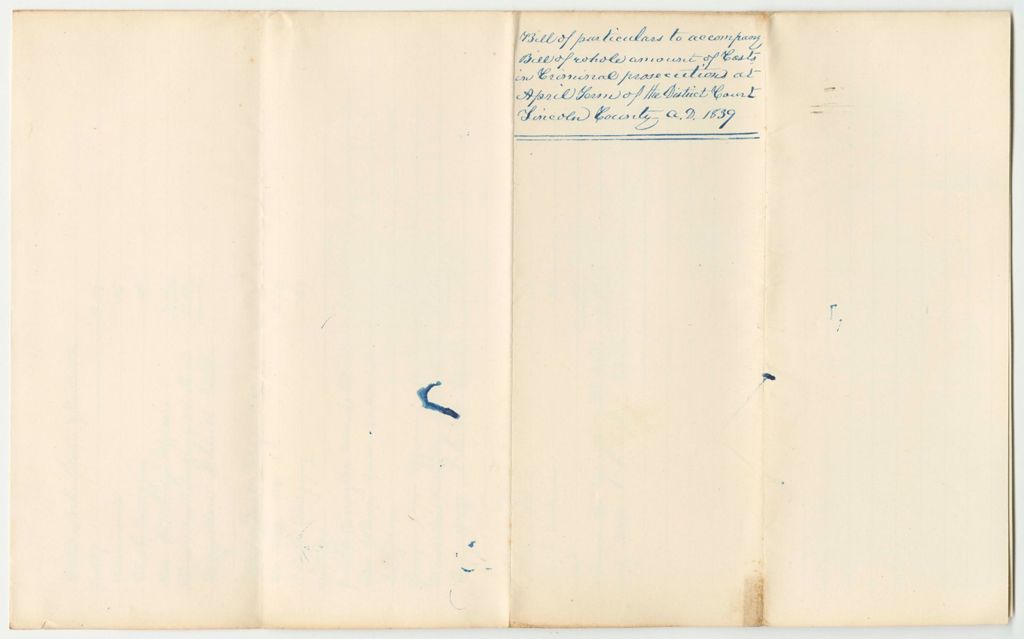 Bill of particulars to accompany
Bill of whole amount of Costs
in Criminal prosecutions at
April Term of the District Court
Lincoln County, A.D. 1839